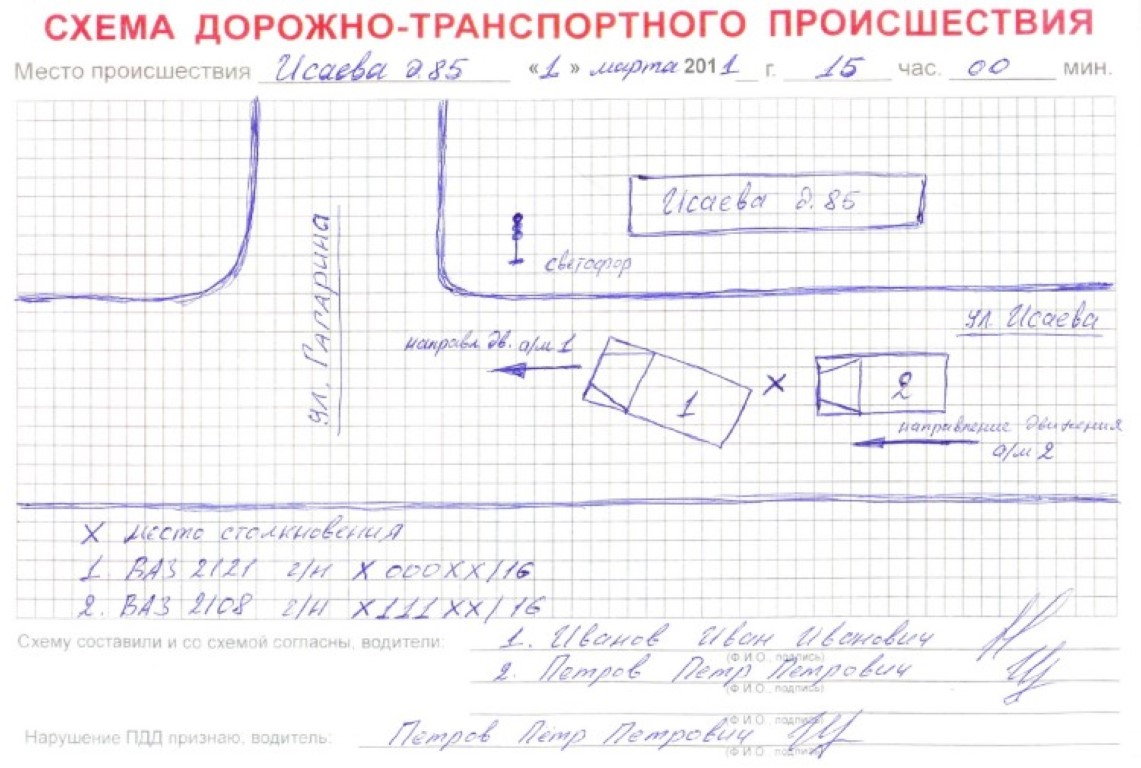 СХЕМА ДОРОЖНО-ТРАНСПОРТНОГО ПРОИСШЕСТВИЯ
Место происшествия Исаева д.85 «1» марта 2011 г. 15 час. 00 мин.
Исаева д.85
светофор
ул. Гагарина
ул. Исаева
направл. дв. а/м 1
1
X
2
направление движения
а/м 2
X место столкновения
1. ВАЗ 2121 г/н X000XX/16
2. ВАЗ 2108 г/н X111XX/16
Схему составили и со схемой согласны, водители: 1. Иванов Иван Иванович
(Ф.И.О., подпись)
2. Петров Петр Петрович
(Ф.И.О., подпись)
(Ф.И.О., подпись)
Нарушение ПДД признаю, водитель: Петров Петр Петрович
(Ф.И.О., подпись)